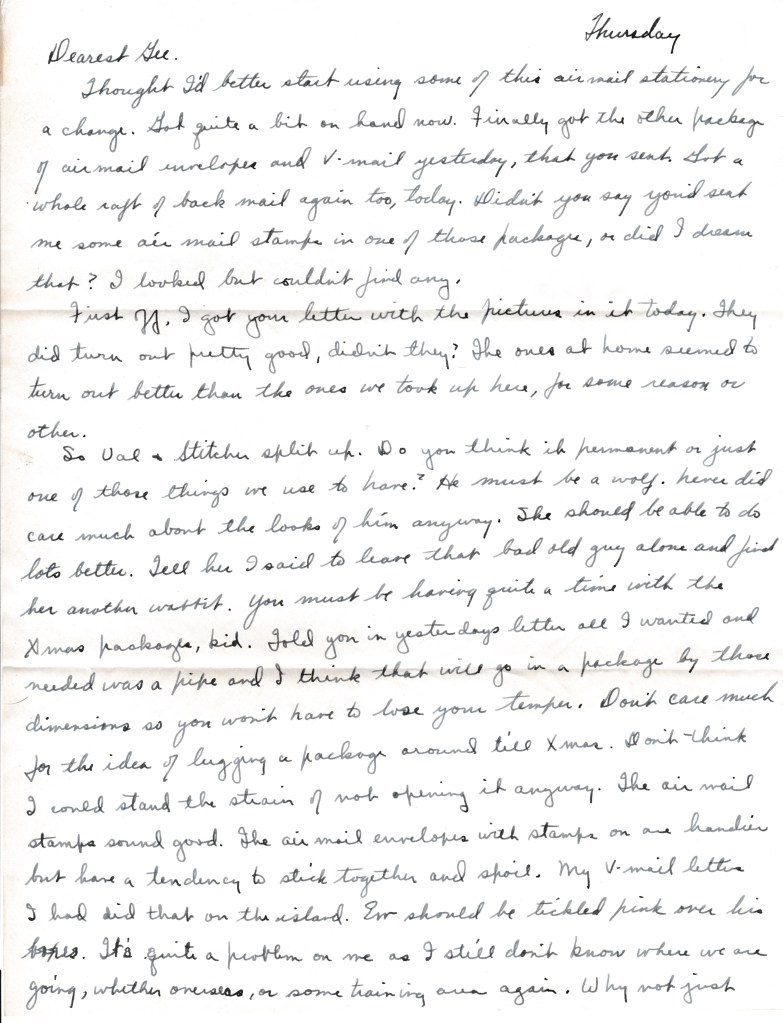 Thursday
Dearest Gee.
Thought I'd better start using some of this air mail stationery for
a change. Got quite a bit on hand now. Finally got the other package
of air mail envelopes and V-mail yesterday, that you sent. Got a
whole raft of back mail again too, today. Didn't you say you'd sent
me some air mail stamps in one of those packages, or did I dream
that? I looked but couldn't find any.
First off, I got your letter with the pictures in it today. They
did turn out pretty good, didn't they? The ones at home seemed to
turn out better than the ones we took up here, for some reason or
other.
So Val & Stitcher split up. Do you think it permanent or just
one of those things we use to have? He must be a wolf. never did
care much about the looks of him anyway. She should be able to do
lots better. Tell her I said to leave that bad old guy alone and find
her another wabbit. You must be having quite a time with the
Xmas packages, kid. Told you in yesterdays letter all I wanted and
needed was a pipe and I think that will go in a package by those
dimensions so you won't have to lose your temper. Don't care much
for the idea of lugging a package around till Xmas. Don't think
I could stand the strain of not opening it anyway. The air mail
stamps sound good. The air mail envelopes with stamps on are handier
but have a tendency to stick together and spoil. My V-mail letters
I had did that on the island. Em should be tickled pink over his
It's quite a problem on me as I still don't know where we are
going, whether overseas, or some training area again. Why not just